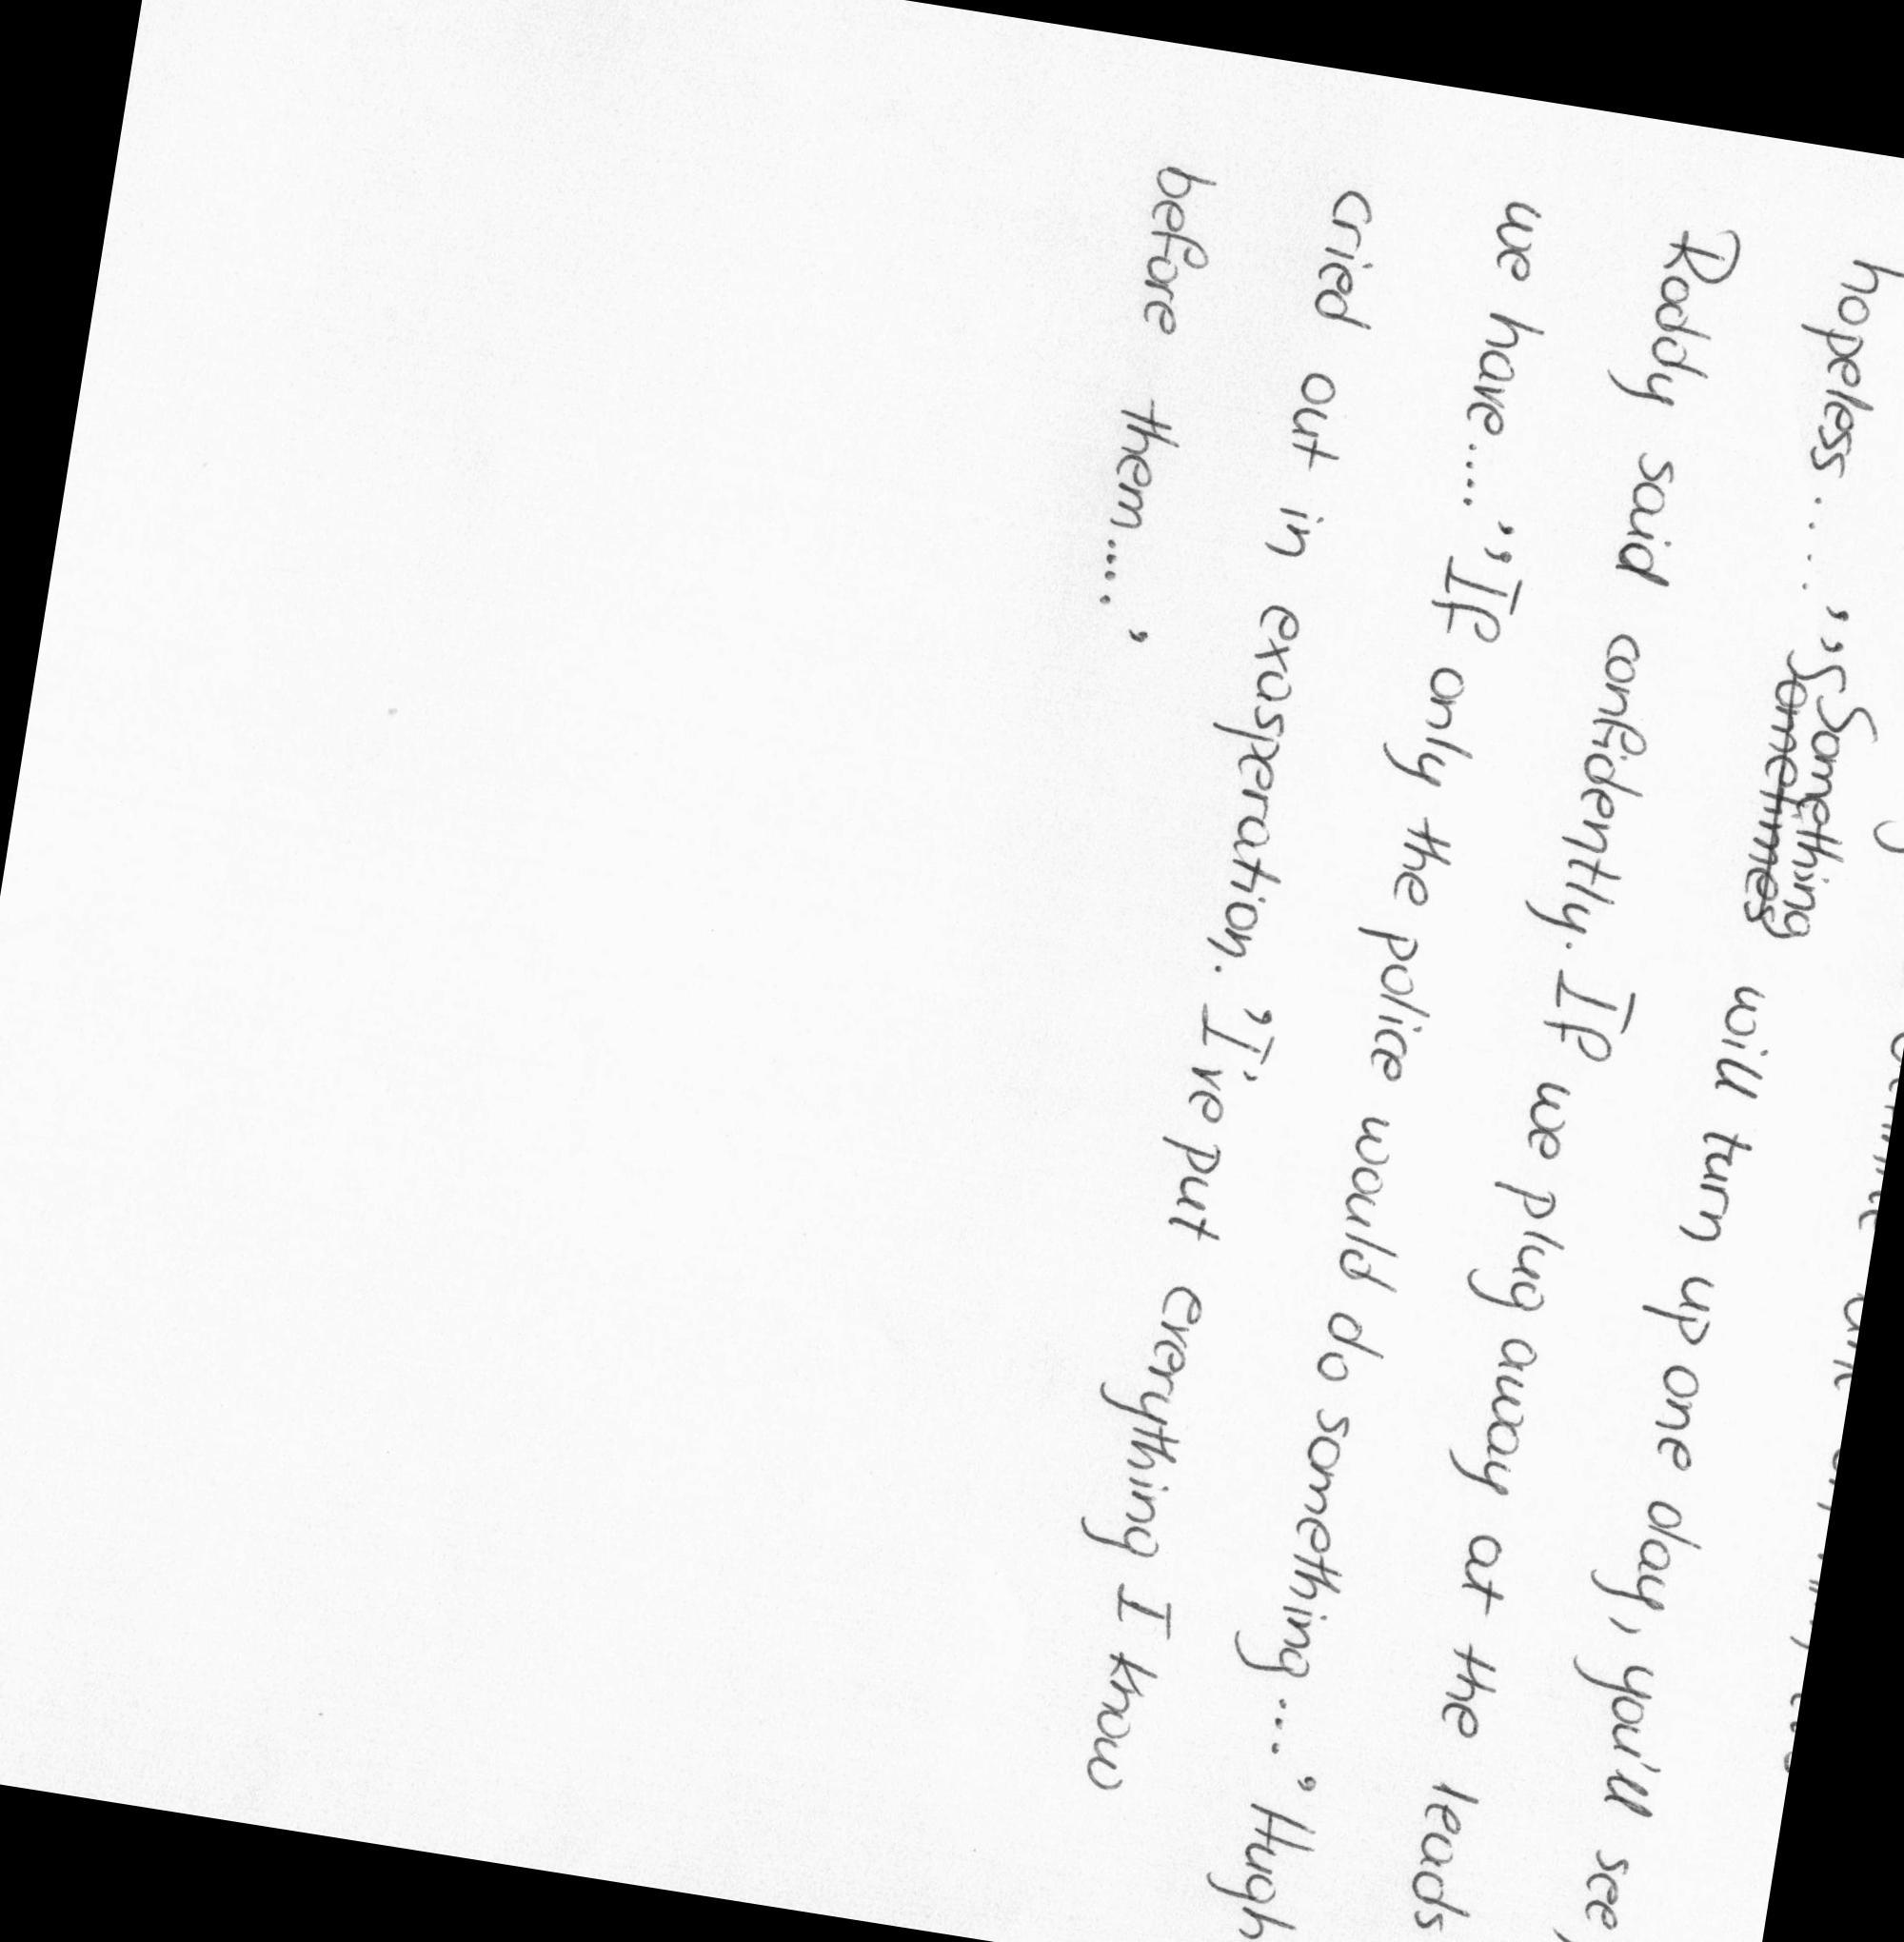 hopeless.....' 'Something will turn up one day, you'll see,'
Roddy said confidently. If we plug away at the leads
we have.....' 'If only the police would do something....' Hugh
cried out in exasperation. 'I've put everything I know
before them.....'